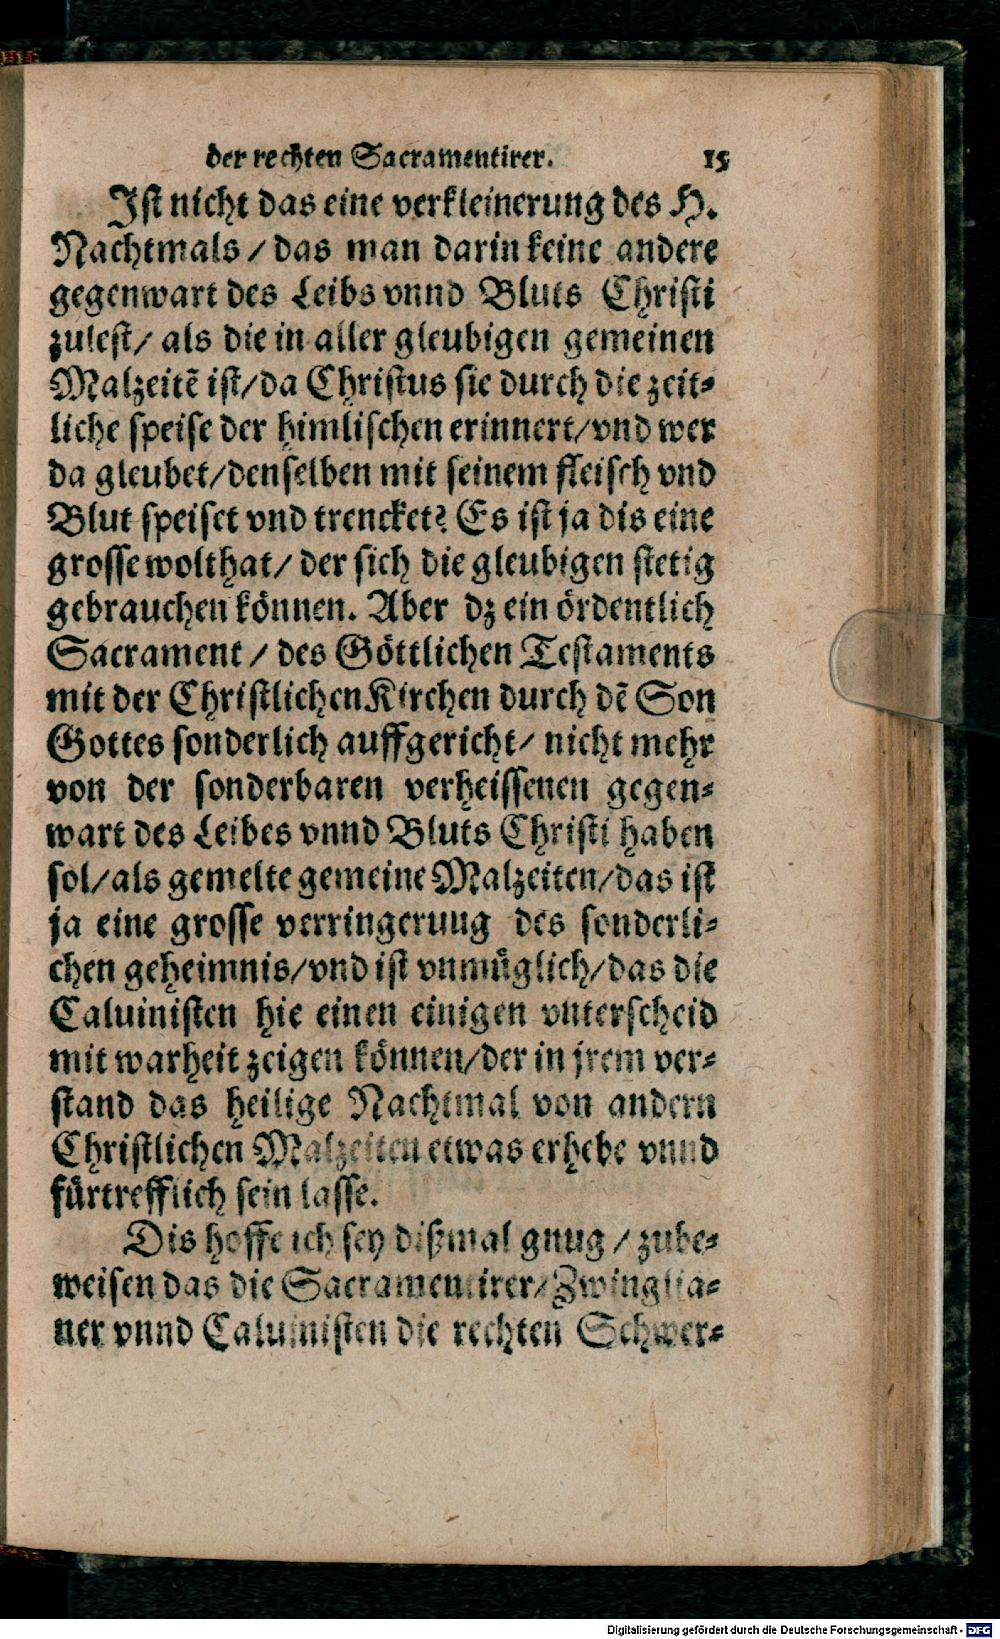 der rechten Sacramentirer. 15
Ist nicht das eine verkleinerung des H.
Nachtmals / das man darin keine andere
gegenwart des Leibs vnnd Bluts Christi
zulest / als die in aller gleubigen gemeinen
Malzeitẽ ist / da Christus sie durch die zeit⸗
liche speise der himlischen erinnert / vnd wer
da gleubet / denselben mit seinem fleisch vnd
Blut speiset vnd trencket? Es ist ja dis eine
grosse wolthat / der sich die gleubigen stetig
gebrauchen können. Aber dz ein ördentlich
Sacrament / des Göttlichen Testaments
mit der Christlichen Kirchen durch dẽ Son
Gottes sonderlich auffgericht / nicht mehr
von der sonderbaren verheissenen gegen⸗
wart des Leibes vnnd Bluts Christi haben
sol / als gemelte gemeine Malzeiten / das ist
ja eine grosse verringerung des sonderli⸗
chen geheimnis / vnd ist vnmüglich / das die
Caluinisten hie einen einigen vnterscheid
mit warheit zeigen können / der in jrem ver⸗
stand das heilige Nachtmal von andern
Christlichen Malzeiten etwas erhebe vnnd
fürtrefflich sein lasse.
Dis hoffe ich sey dißmal gnug / zube⸗
weisen das die Sacramentirer / Zwinglia⸗
ner vnnd Caluinisten die rechten Schwer⸗
Digitalisierung gefördert durch die Deutsche Forschungsgemeinschaft - DFG